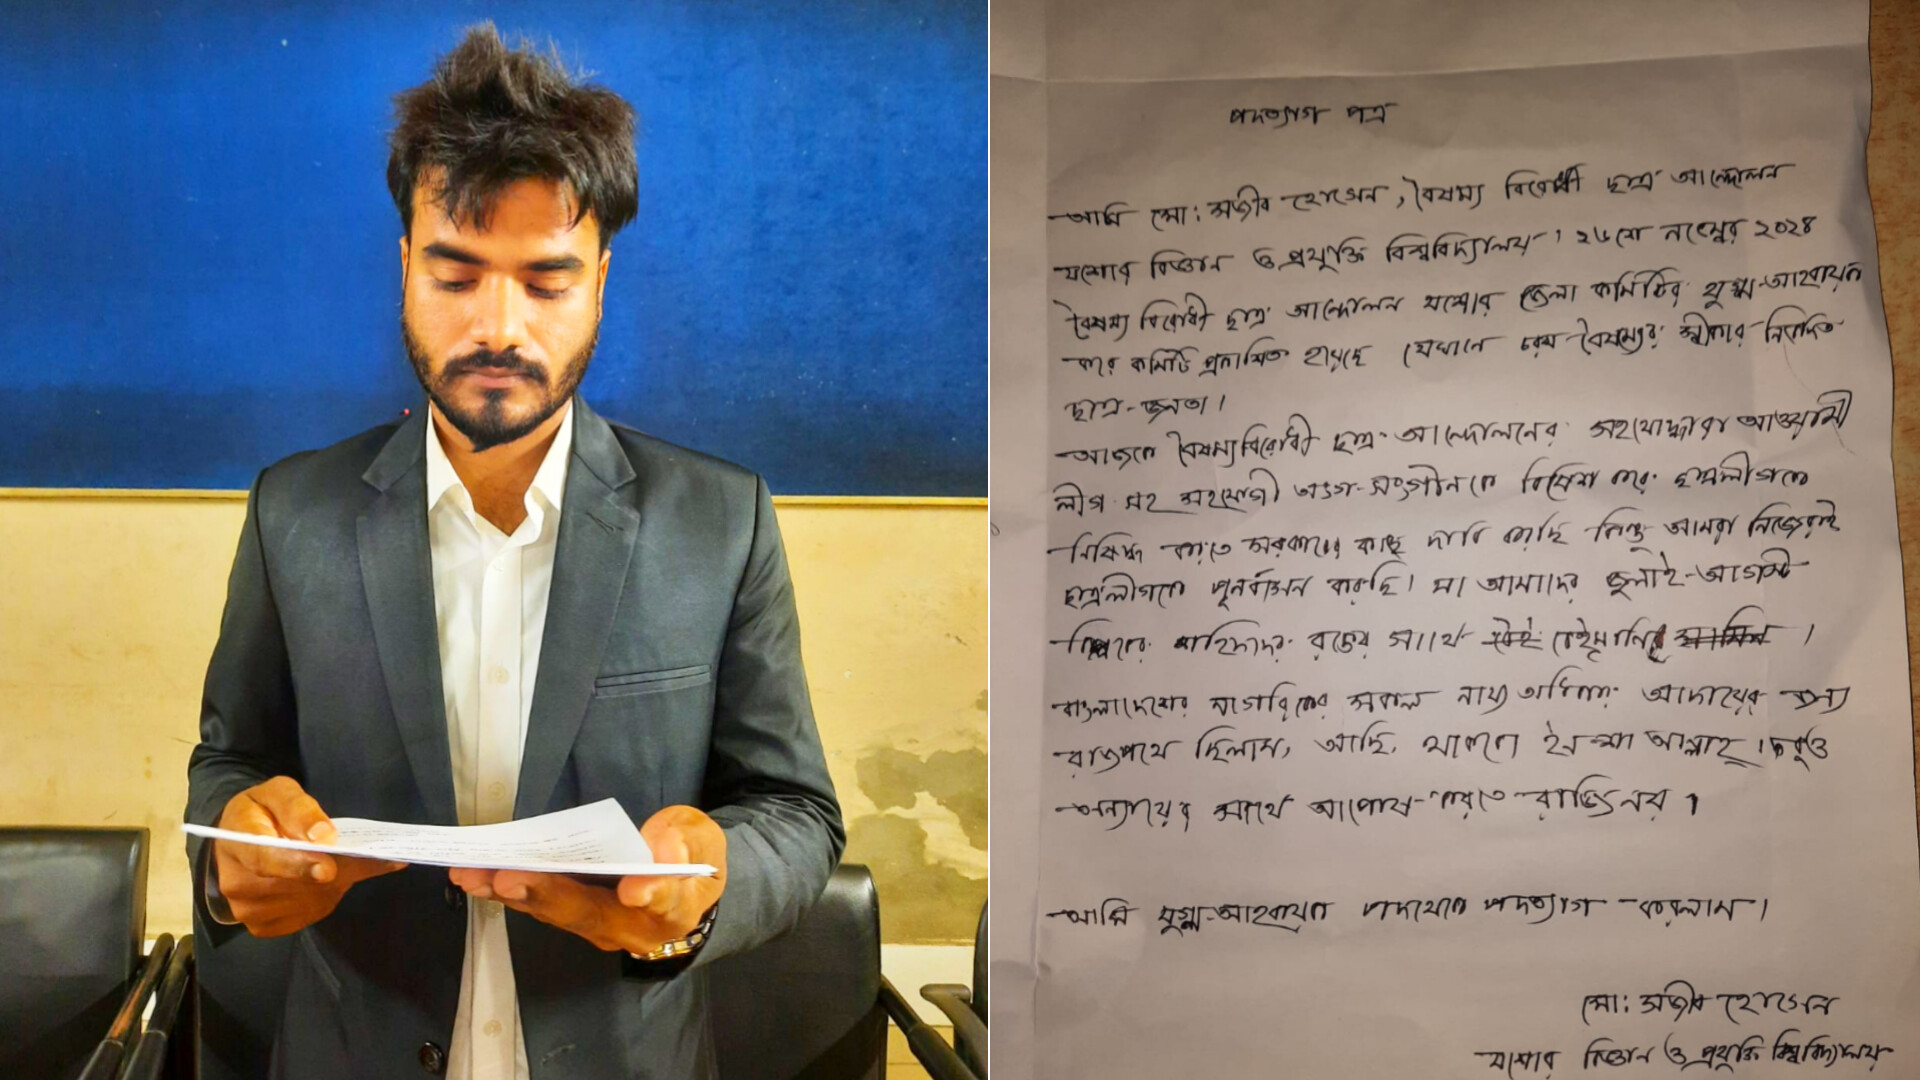 পদত্যাগ পত্র
আমি মো: সজীব হোসেন, বৈষম্য বিরোধী ছাত্র আন্দোলন
যশোর বিজ্ঞান ও প্রযুক্তি বিশ্ববিদ্যালয়। ২৬শে নভেম্বর ২০২৪
বৈষম্য বিরোধী ছাত্র আন্দোলন যশোর জেলা কমিটির যুগ্ম-আহবায়ক
করে কমিটি প্রকাশিত হয়েছে যেখানে চরম বৈষম্যের স্বীকার নিবেদিত
ছাত্র-জনতা।
আজকে বৈষম্যবিরোধী ছাত্র আন্দোলনের সহযোদ্ধারা আওয়ামী
লীগ সহ সহযোগী অংগ-সংগঠনকে বিশেষ করে ছাত্রলীগকে
নিষিদ্ধ করতে সরকারের কাছে দাবি করছি কিন্তু আমরা নিজেরাই
ছাত্রলীগকে পুনর্বাসন করছি। যা আমাদের জুলাই-আগস্ট
বিপ্লবের শহিদদের রক্তের সাথে বেইমানি।
বাংলাদেশের নাগরিকের সকল নায্য অধিকার আদায়ের জন্য
রাজপথে ছিলাম, আছি, থাকবো ইনশা আল্লাহ। তবুও
অন্যায়ের সাথে আপোষ করতে রাজি নয়।
আমি যুগ্ম-আহবায়ক পদথেকে পদত্যাগ করলাম।
মো: সজীব হোসেন
যশোর বিজ্ঞান ও প্রযুক্তি বিশ্ববিদ্যালয়